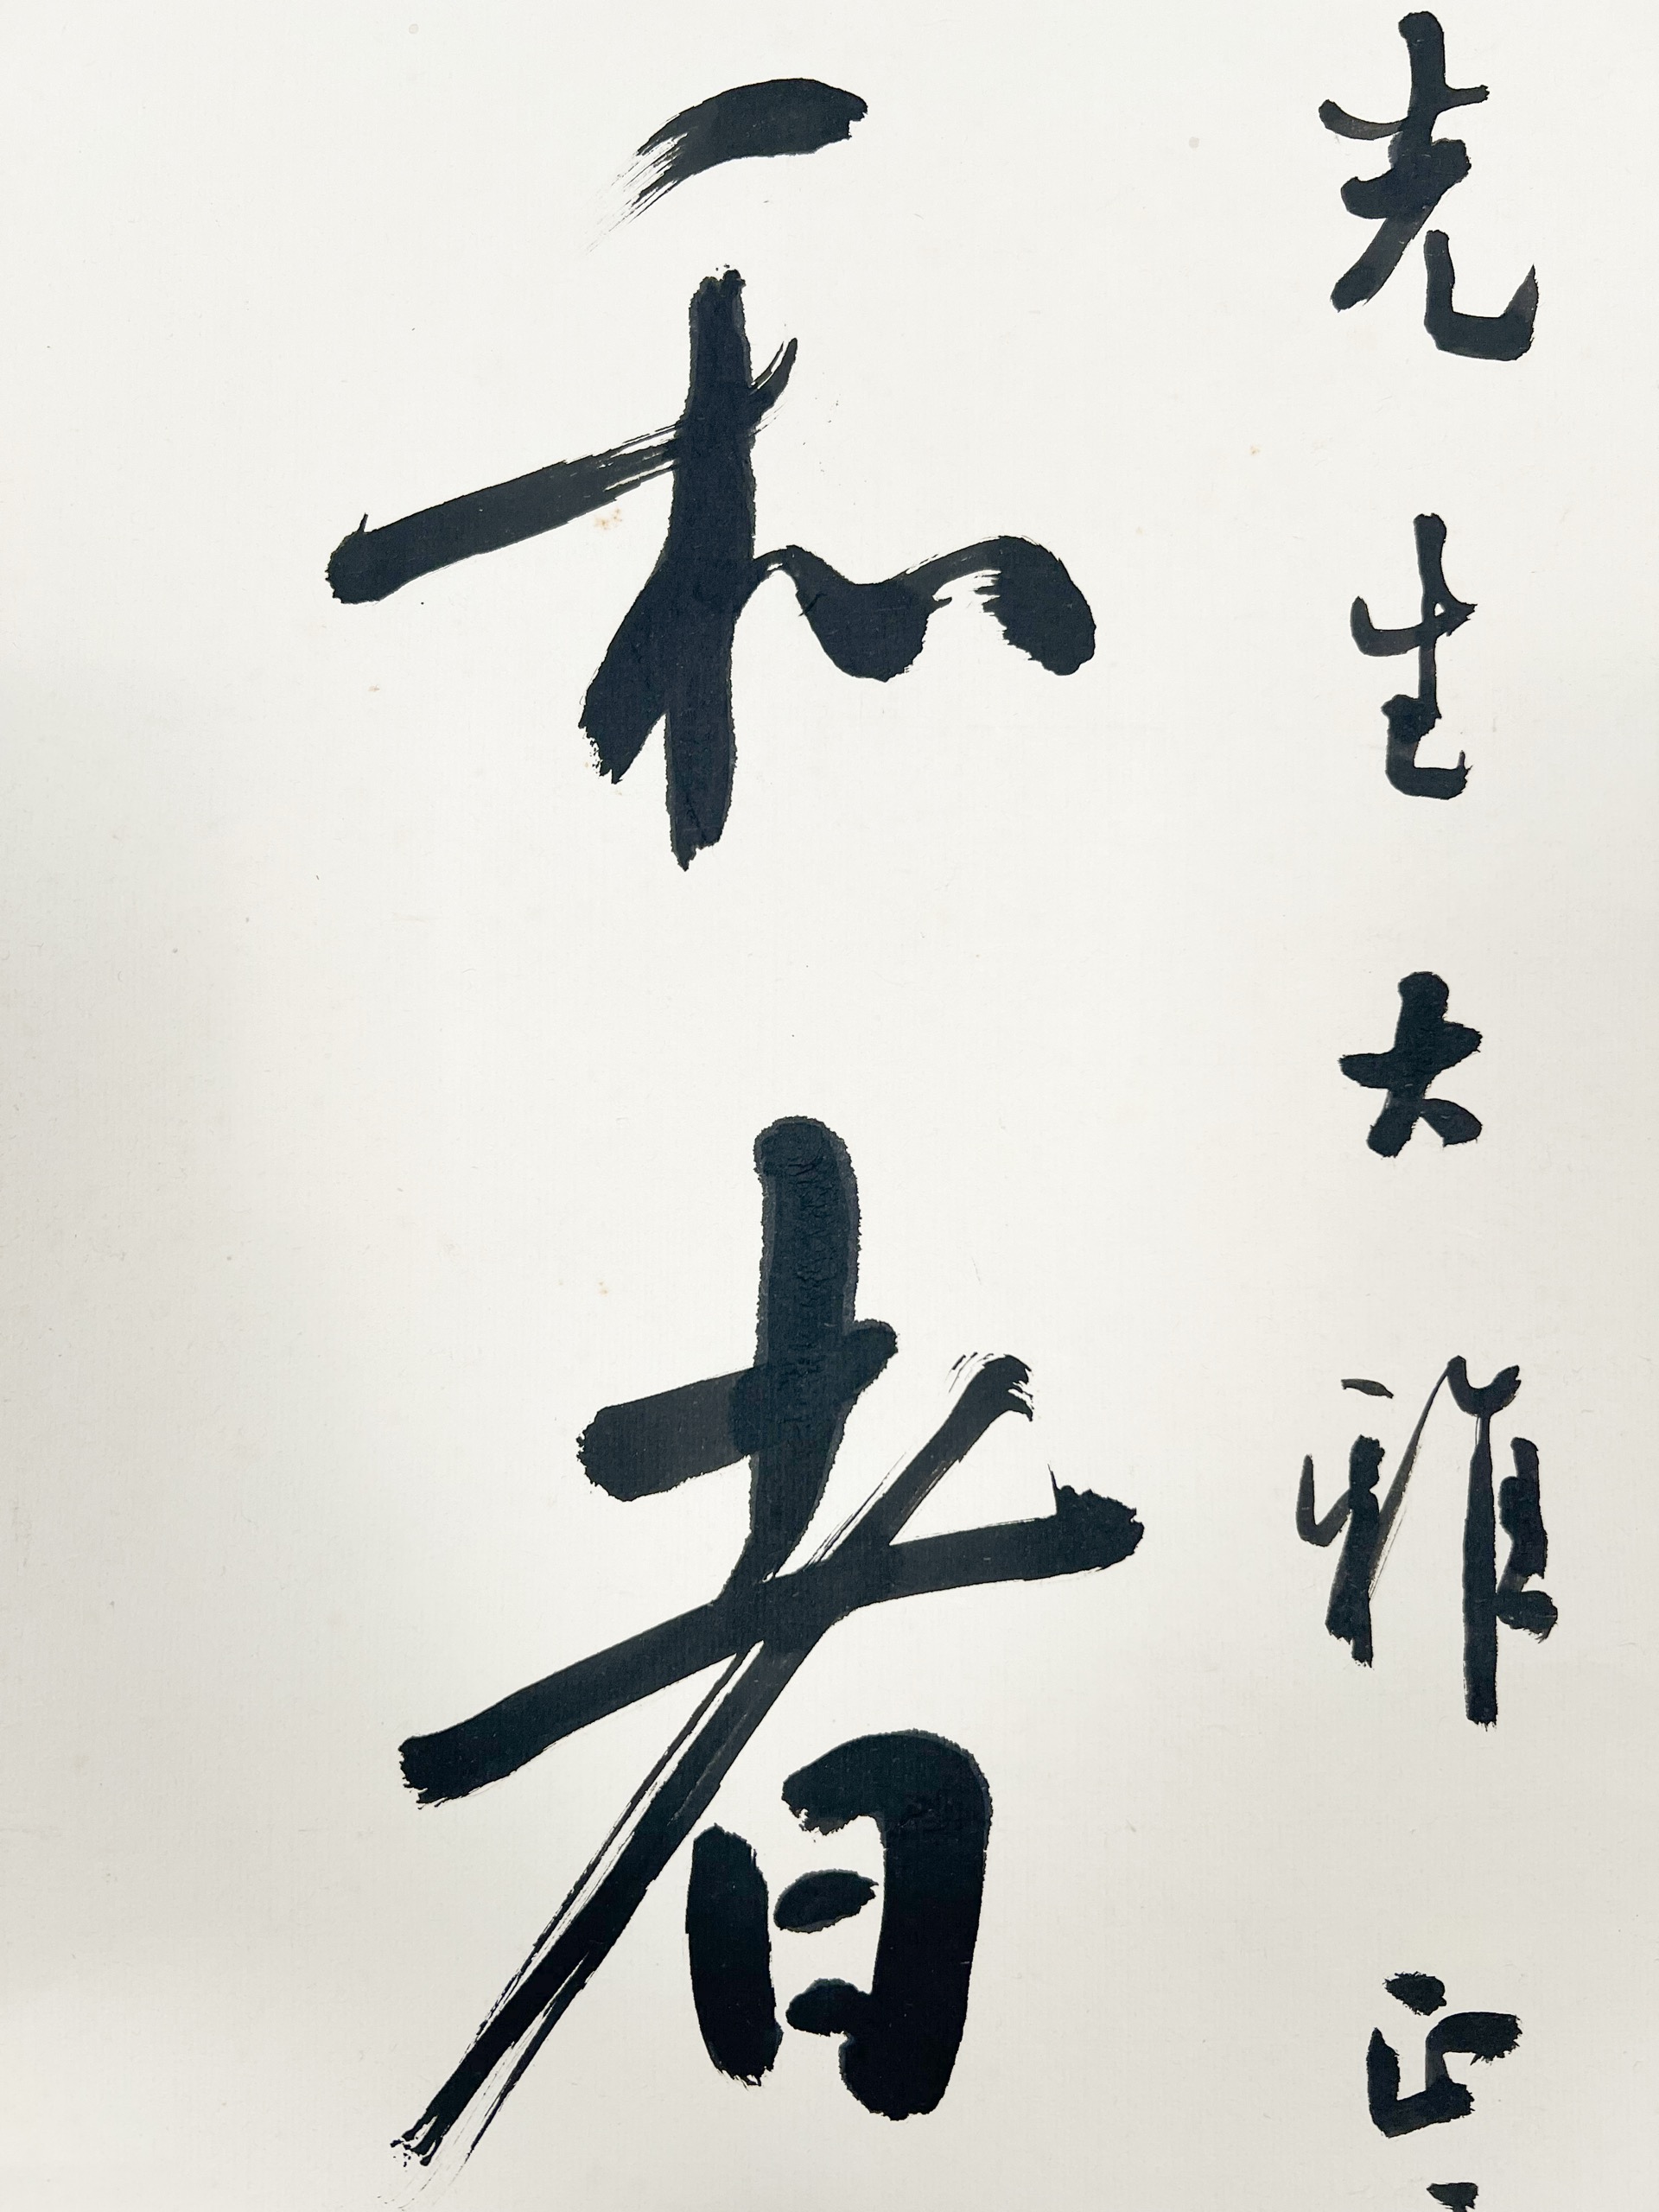 先生大雅正
和者